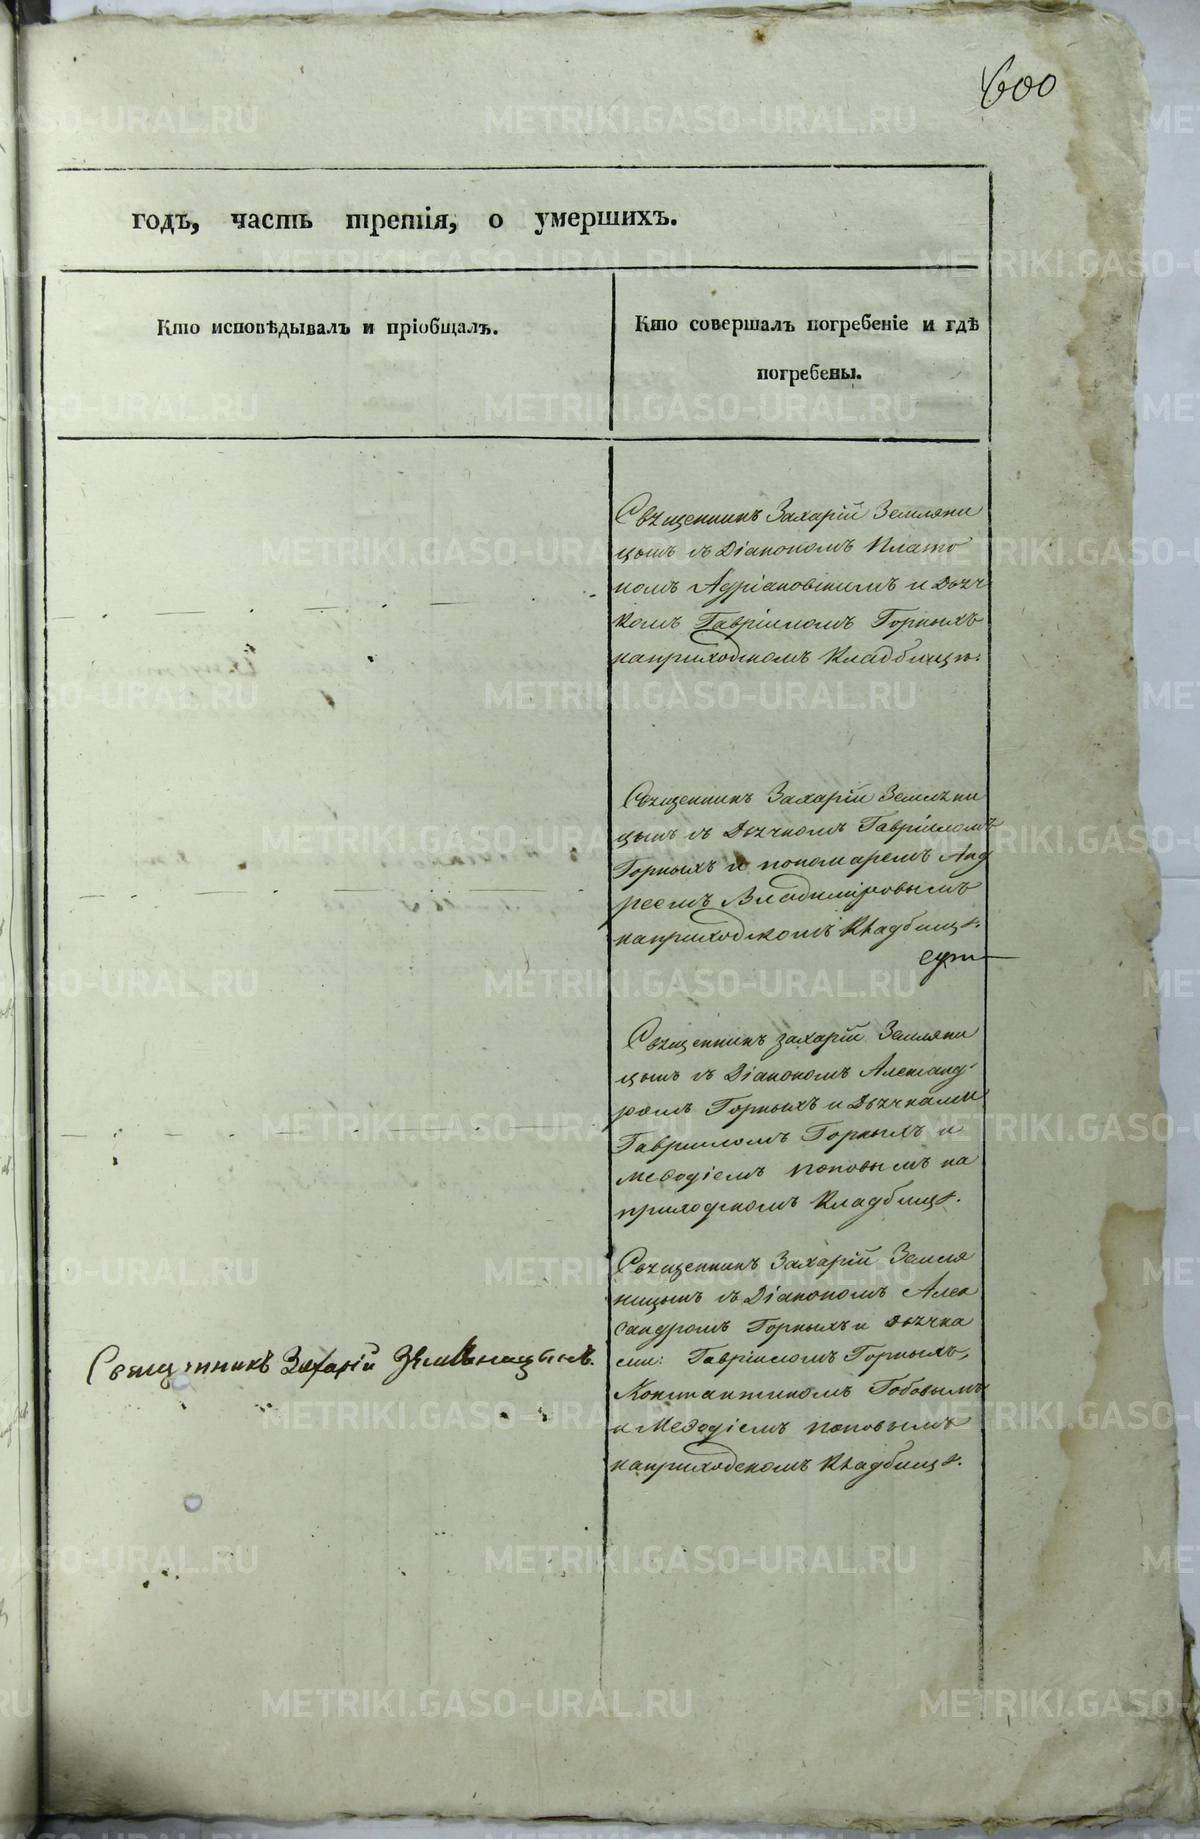 600
годъ, часть третія, о умершихъ.
Кто исповѣдывалъ и пріобщалъ.
Кто совершалъ погребеніе и гдѣ
погребены.
Священникъ Захарій Земляни
цынъ съ Діакономъ Плато
номъ Адріановскимъ и Дьяч
комъ Гавріиломъ Горныхъ
наприходскомъ Кладбищѣ.
Священникъ Захарій Земляни
цынъ съ Дьячкомъ Гавріиломъ
Горныхъ и пономаремъ Анд
реемъ Владиміровымъ
наприходскомъ Кладбищѣ.
Священникъ Захарій Земляни
цынъ съ Діакономъ Александ
ромъ Горныхъ и Дьячками
Гавріиломъ Горныхъ и
Меѳодіемъ Поповымъ на
приходскомъ Кладбищѣ.
Священникъ Захарій Земля
ницынъ съ Діакономъ Алек
сандромъ Горныхъ и Дьячка
ми: Гавріиломъ Горныхъ,
Константиномъ
и Меѳодіемъ Поповымъ
наприходскомъ Кладбищѣ.
Священникъ Захарій Земляницынъ.
METRIKI.GASO-URAL.RU